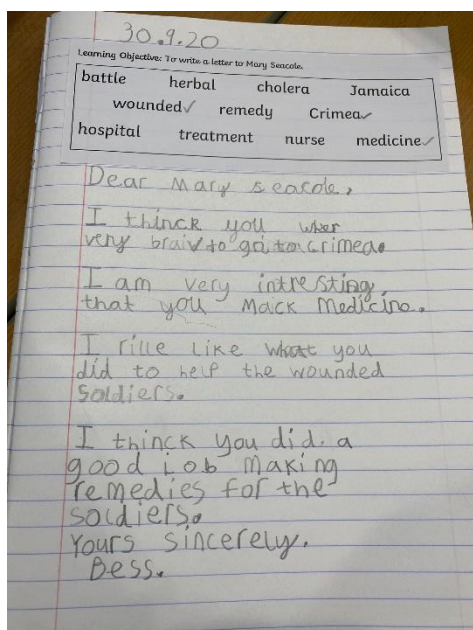 30.9.20
Learning Objective: To write a letter to Mary Seacole.
battle herbal cholera Jamaica
wounded✓ remedy Crimea✓
hospital treatment nurse medicine✓
Dear Mary seacole,
I thinck you wher
very braiv to go to crimea.
I am very intresting
that you Mack Medicine.
I rille like what you
did to help the wounded
Soldiers.
I thinck you did. a
good job making
remedies for the
soldiers.
Yours sincerely.
Bess.